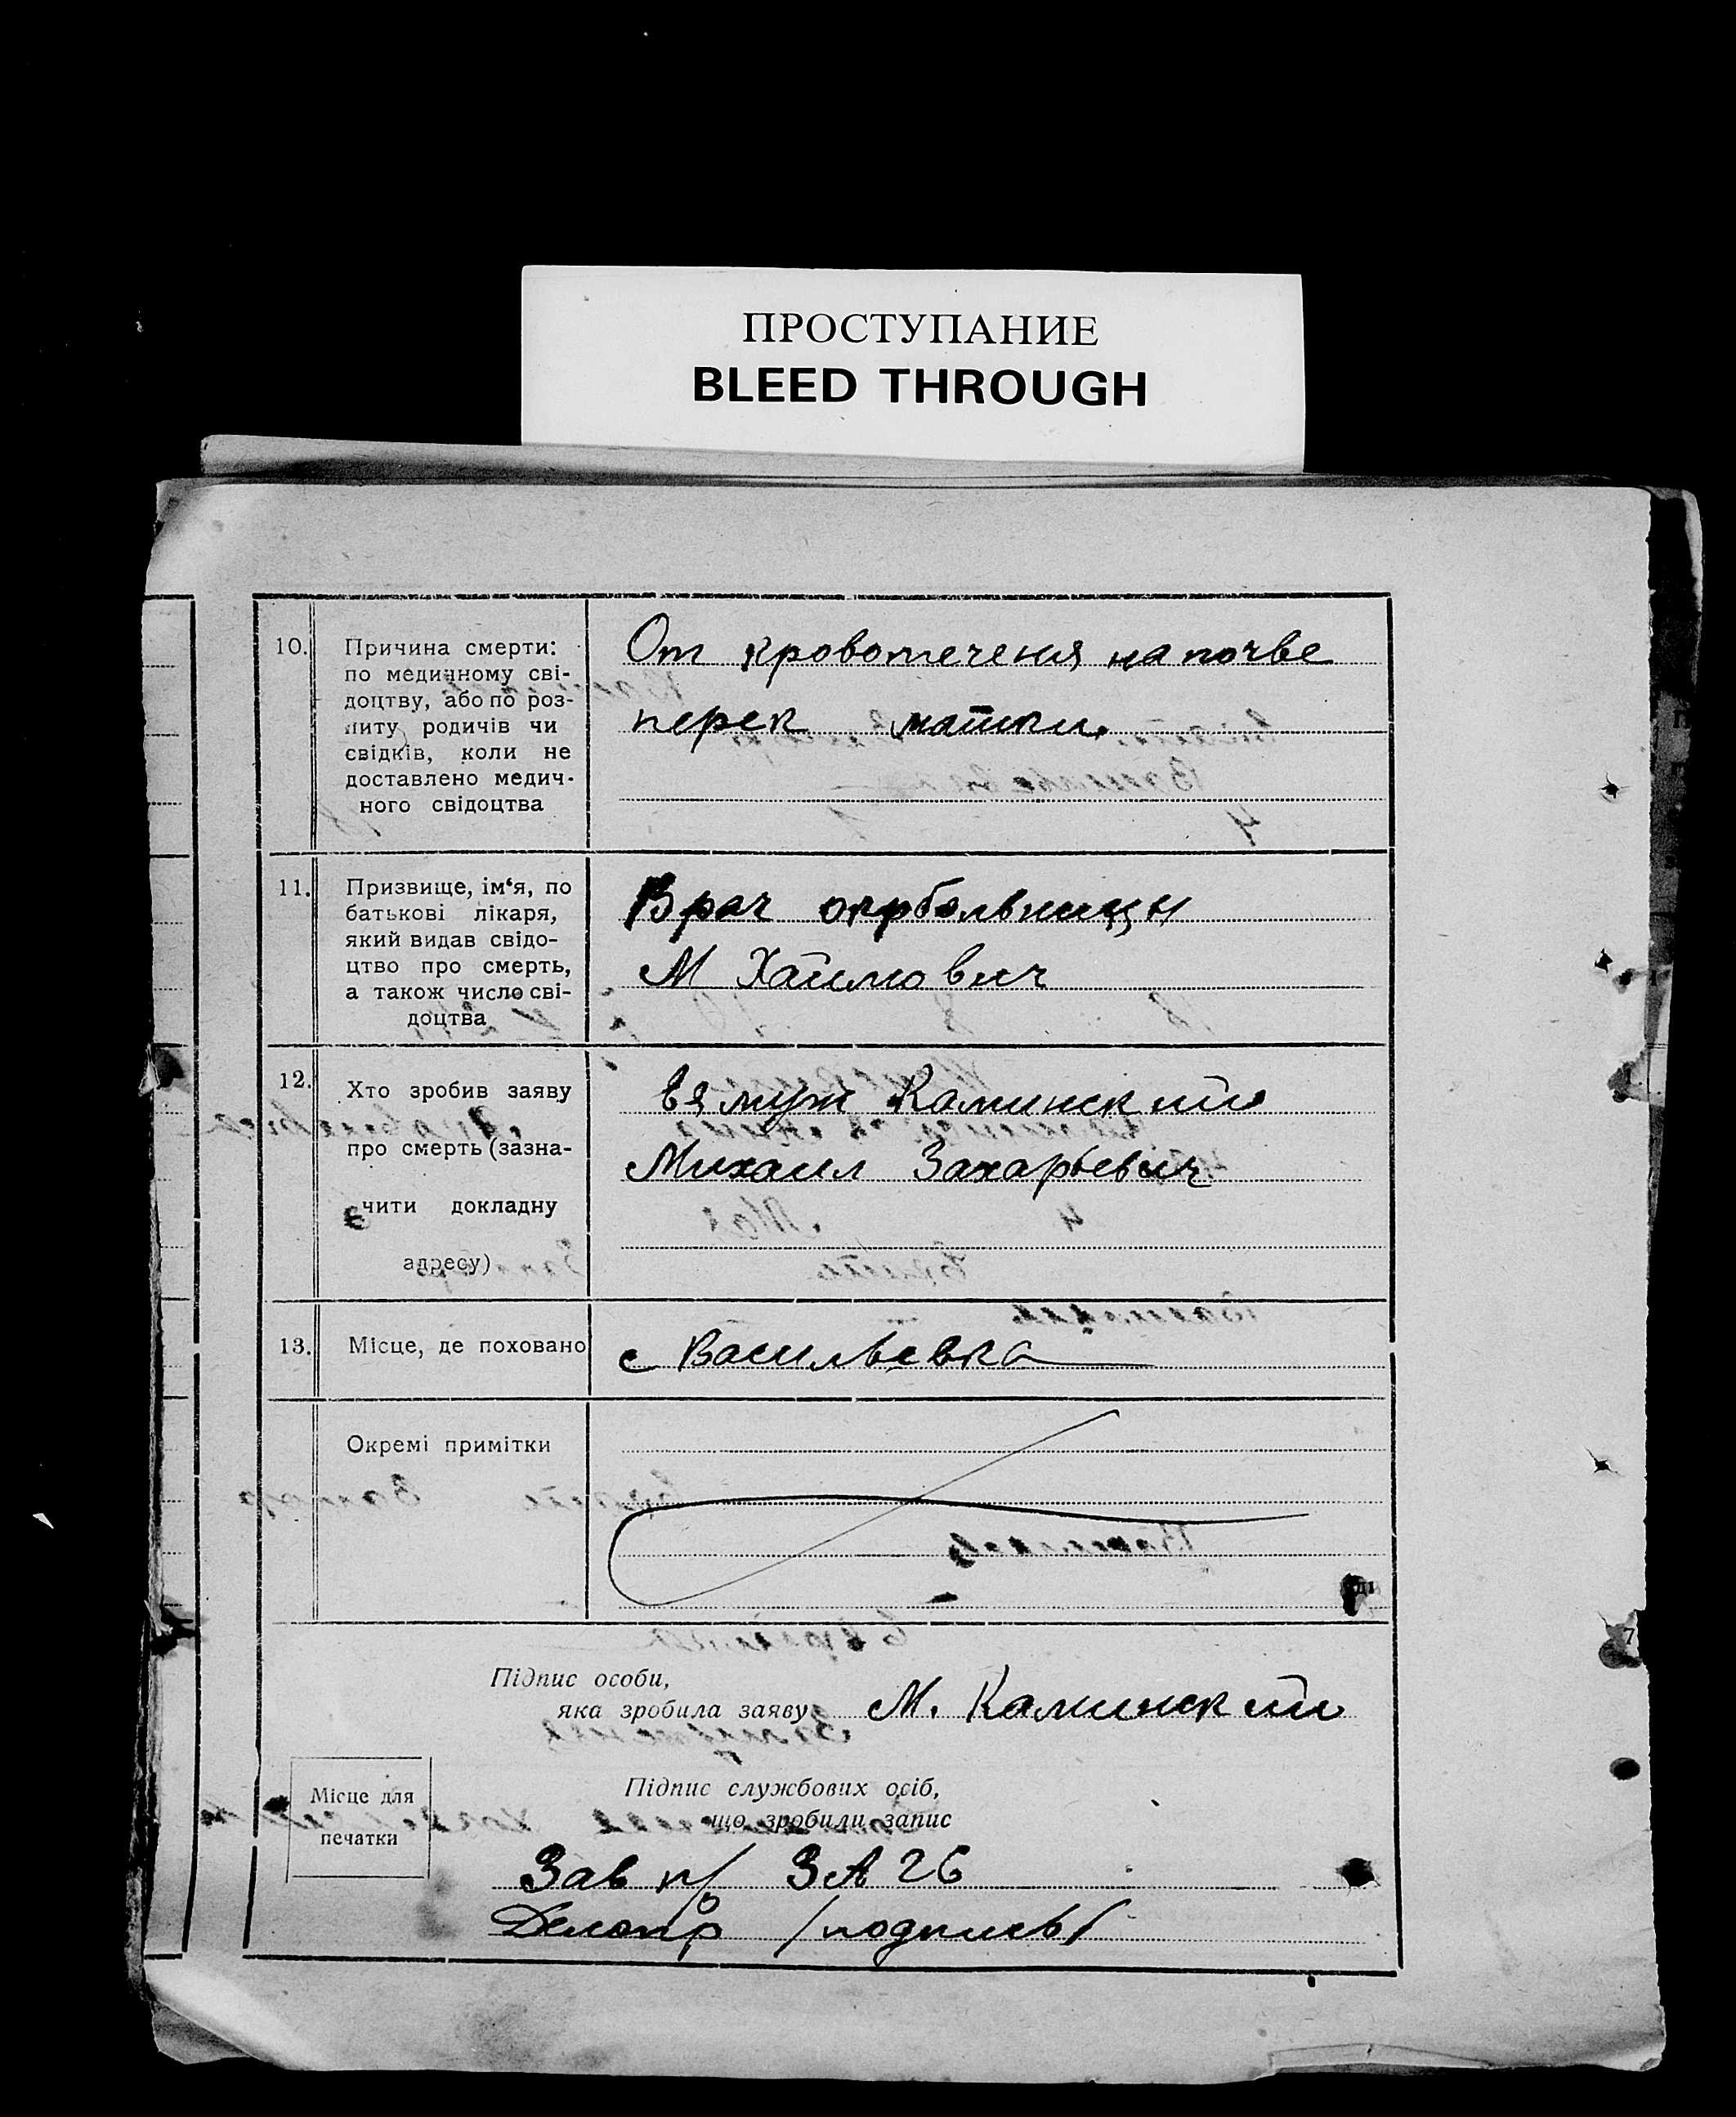 ПРОСТУПАНИЕ
BLEED THROUGH
10. Причина смерти:
по медичному сві-
доцтву, або по роз-
питу родичів чи
свідків, коли не
доставлено медич-
ного свідоцтва
От кровотечения на почве
перек матки.
11. Призвище, ім‘я, по
батькові лікаря,
який видав свідо-
цтво про смерть,
а також число сві-
доцтва
Врач окрбольницы
М Хаимович
12. Хто зробив заяву
про смерть (зазна-
чити докладну
адресу)
Ея муж Каминский
Михаил Захарьевич
13. Місце, де поховано
с Васильевка
Окремі примітки
Підпис особи,
яка зробила заяву
М. Каминский
Місце для
печатки
Підпис службових осіб,
що зробили запис
Зав п/
Делопр /подпись/